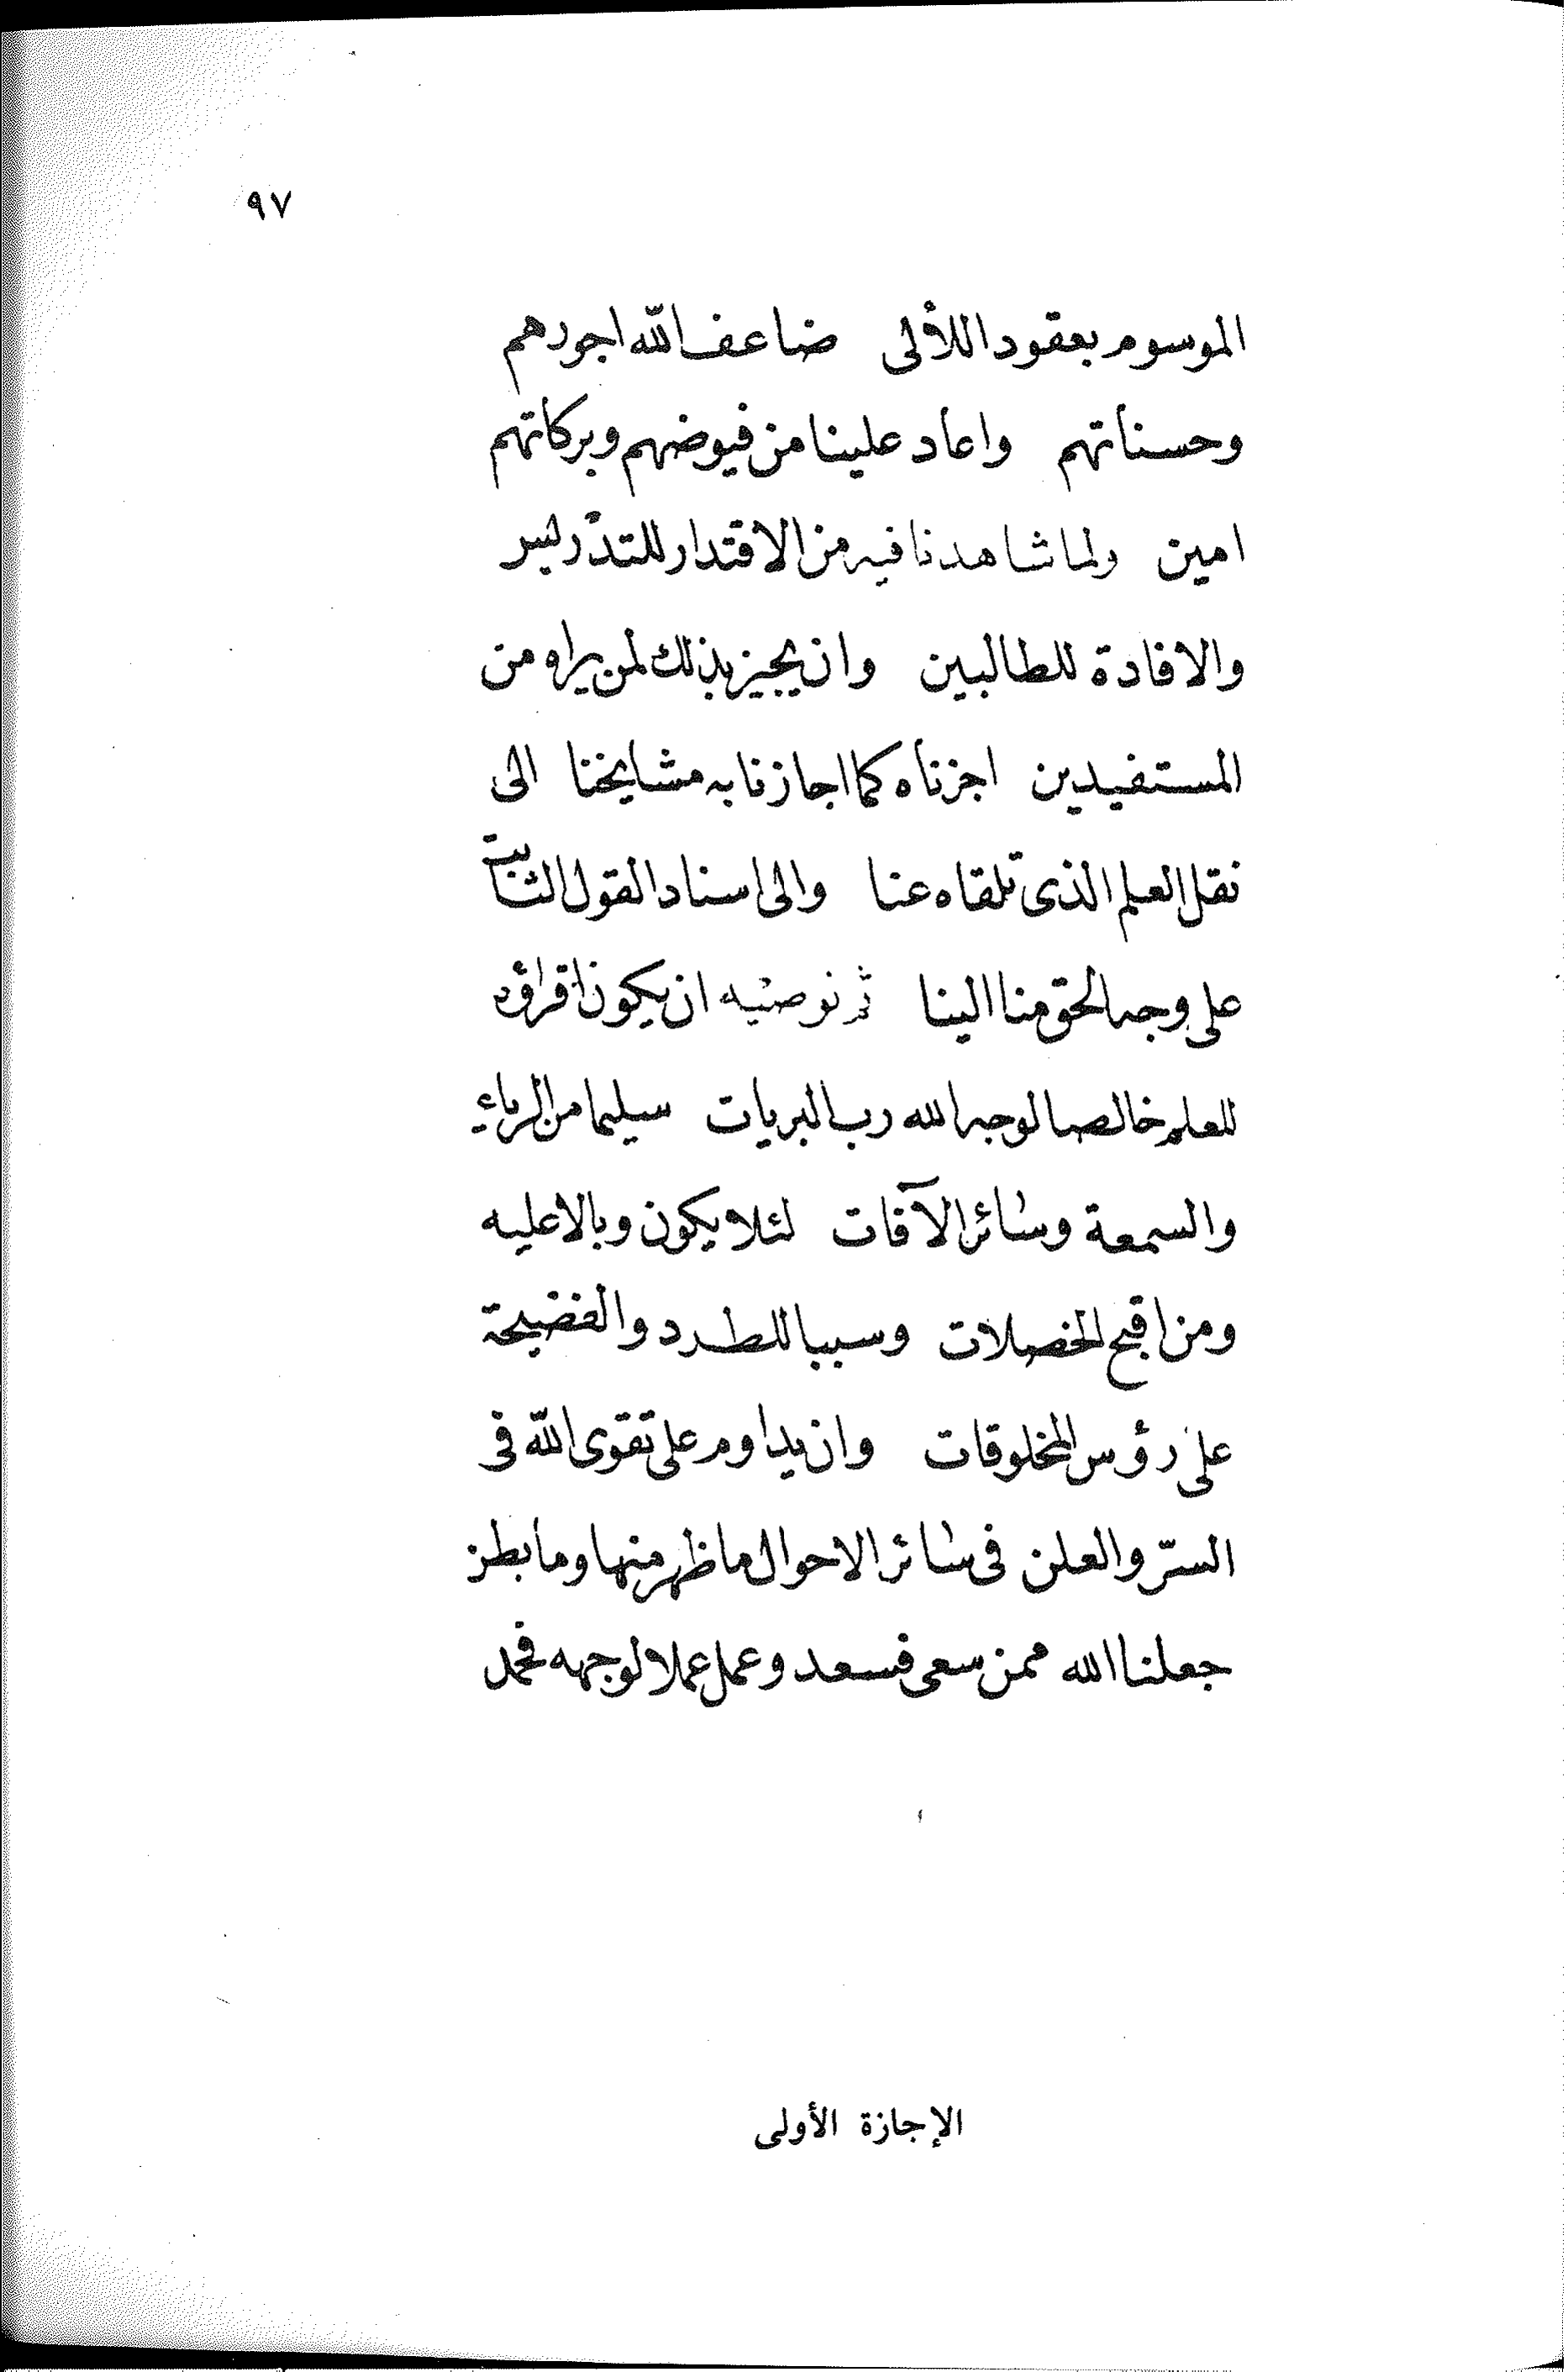 ٩٧
الموسوم بعقود اللألى ضاعف الله اجورهم
وحسناتهم واعاد علينا من فيوضهم وبركاتهم
امين ولما شاهدنا فيه من الاقتدار للتدريس
والافادة للطالبين وان يجيز بذلك لمن يراه من
المستفيدين اجزناه كما اجازنا به مشايخنا الى
نقل العلم الذى تلقاه عنا والى اسناد القول الثابت
على وجه الحق منا الينا ثم نوصيه ان يكون اقراؤه
للعلم خالصا لوجه الله رب البريات سليما من الرياء
والسمعة وسائر الآفات لئلا يكون وبالا عليه
ومن اقبح الخصلات وسببا للطرد والفضيحة
على رؤس المخلوقات وان يداوم على تقوى الله فى
السرّ والعلن فى سائر الاحوال ما ظهر منها وما بطن
جعلنا الله ممن سعى فسعد وعمل عملا لوجهه فحمد
الإجازة الأولى